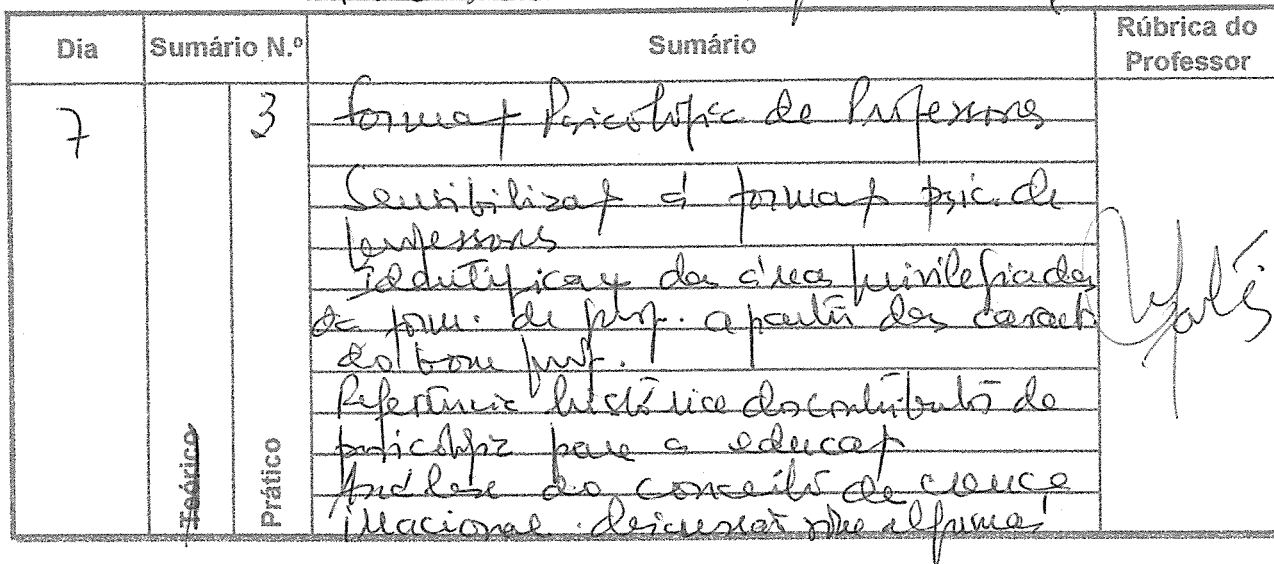 Dia Sumário N.º Sumário Rúbrica do Professor
7 3 Formaç Psicológic de Professores
Sensibilizaç à formaç psic. de
professores
Identificaç das áreas privilegiadas
da form. de prof. a partir das caract.
do bom prof.
Referência histórica dos contributos da
psicologia para a educaç
Análise do conceito de crença
irracional. discussão sobre algumas
Teórico
Prático